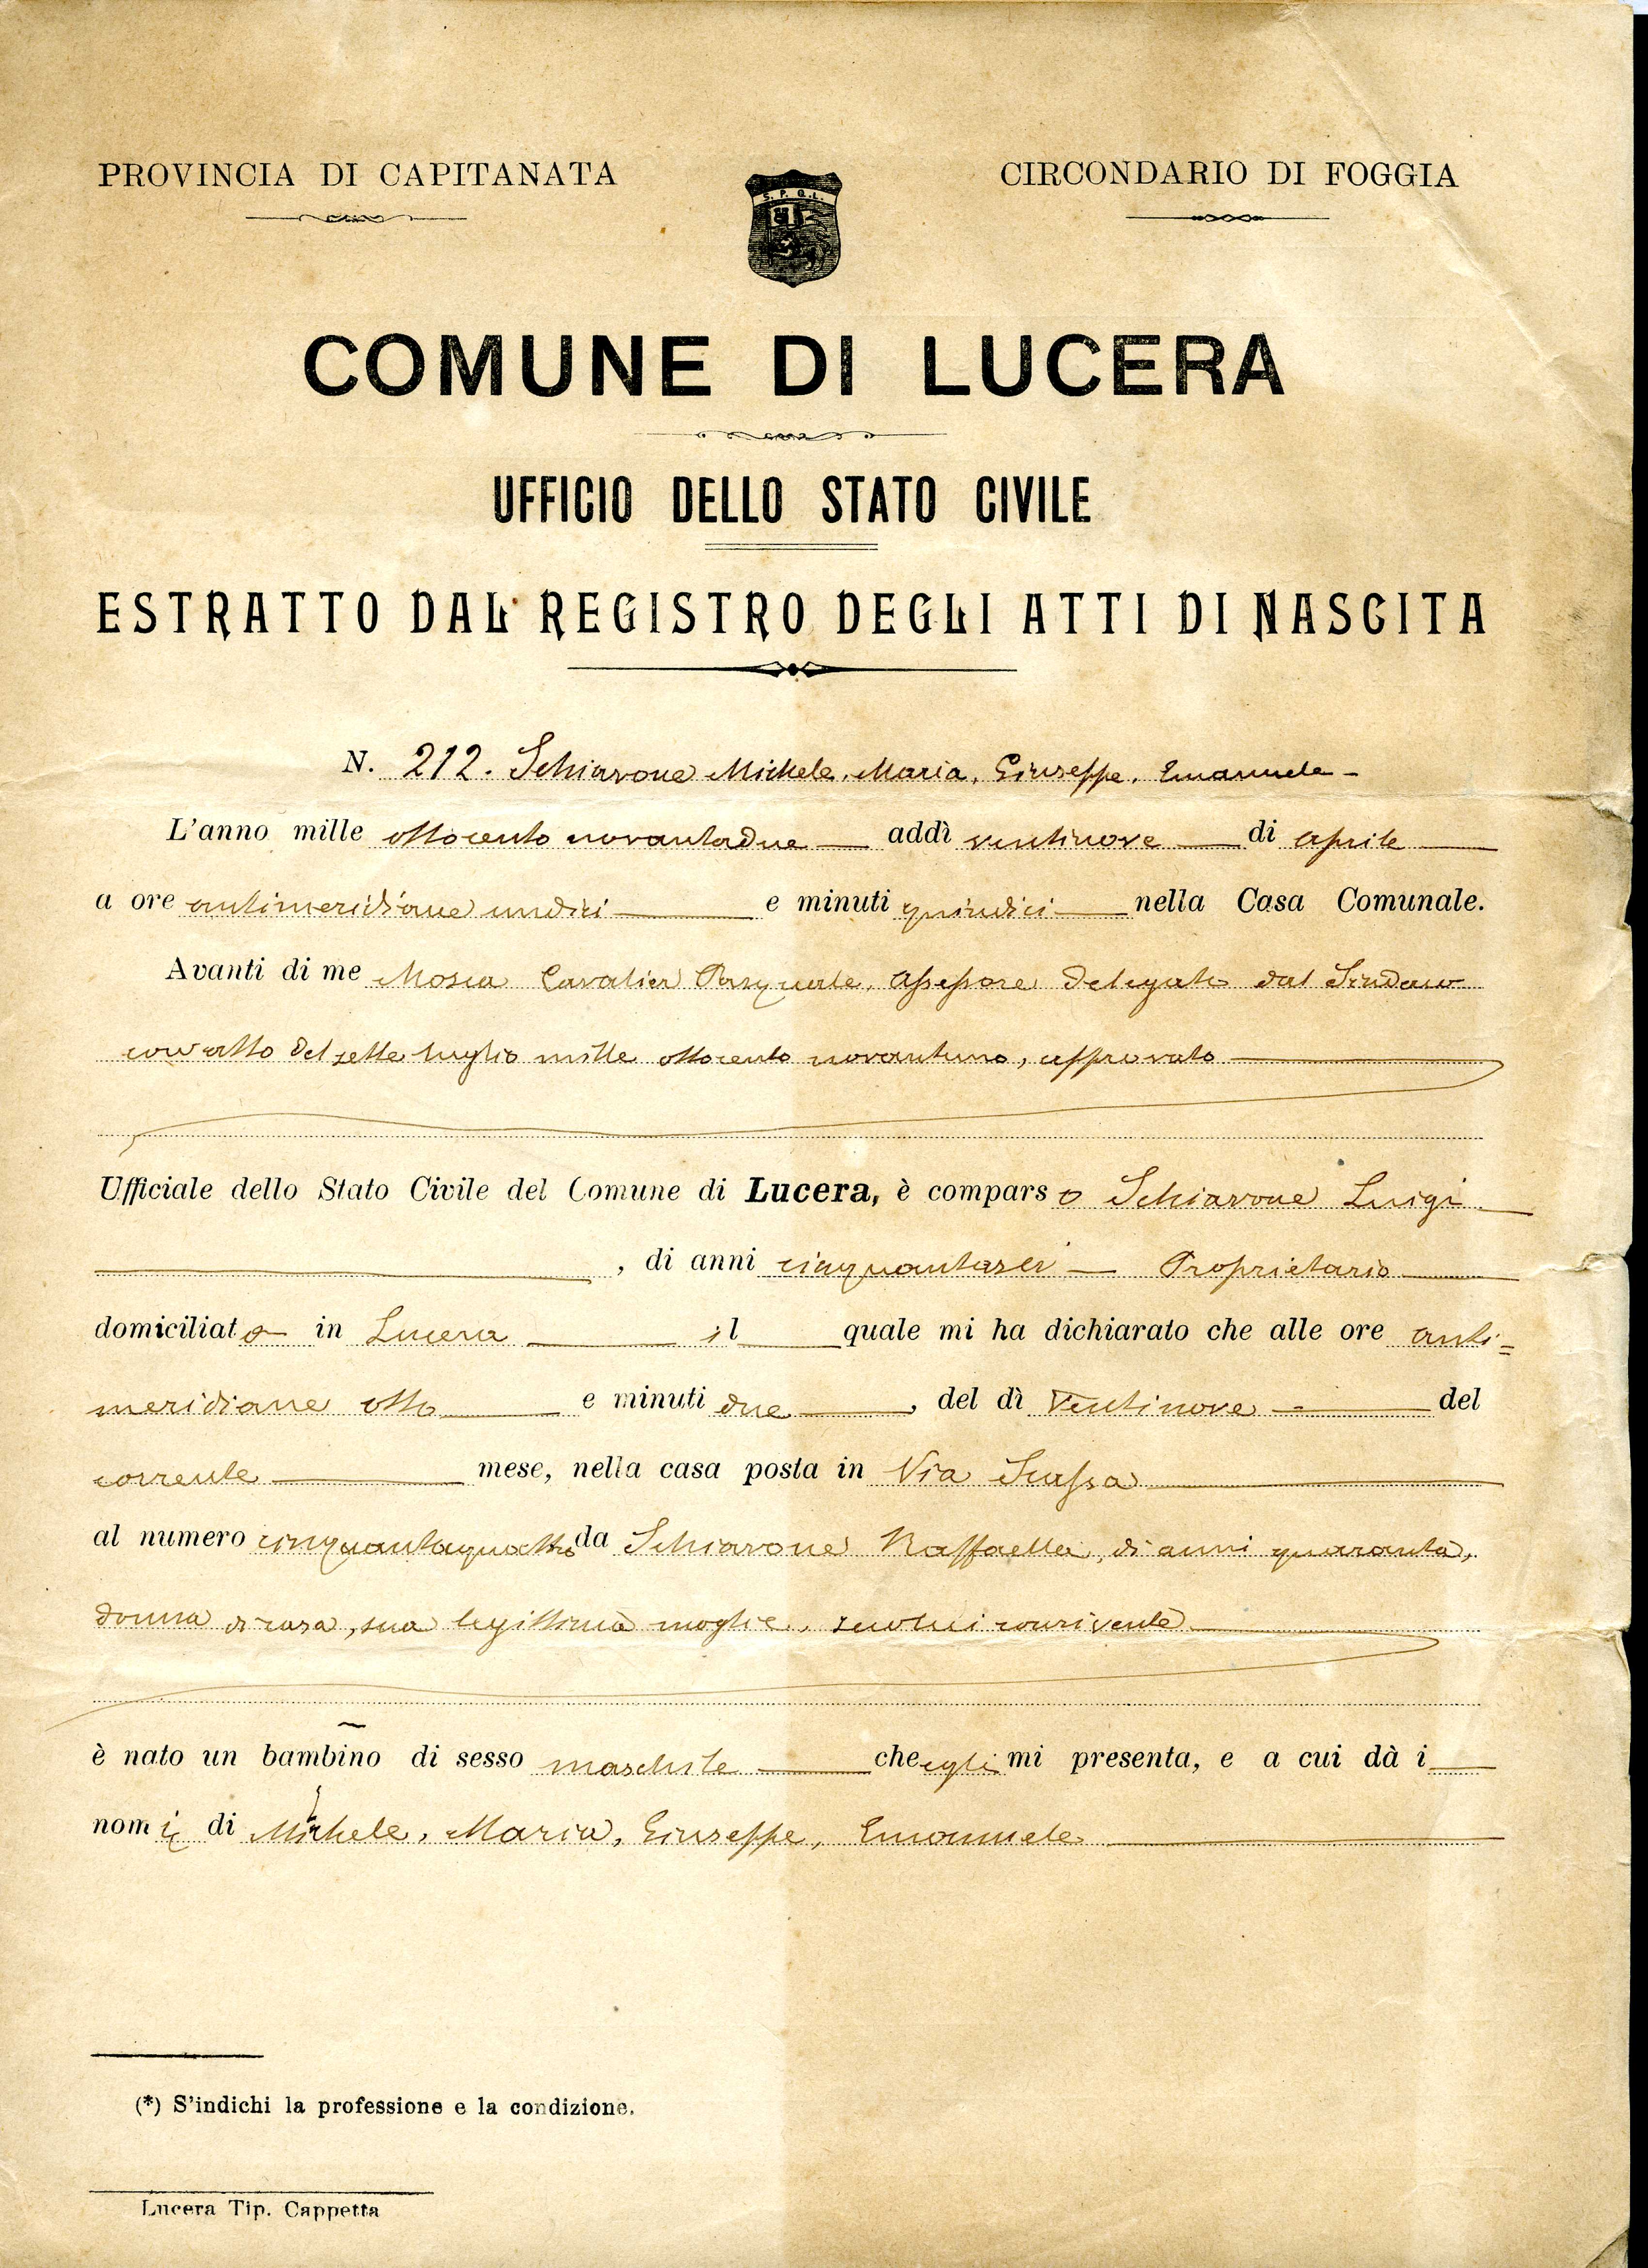 PROVINCIA DI CAPITANATA
CIRCONDARIO DI FOGGIA
S. P. Q. L.
COMUNE DI LUCERA
UFFICIO DELLO STATO CIVILE
ESTRATTO DAL REGISTRO DEGLI ATTI DI NASCITA
N. 212. Schiavone Michele, Maria, Giuseppe, Emanuele -
L'anno mille ottocento novantadue — addì ventinove — di aprile —
a ore antimeridiane undici — e minuti quindici — nella Casa Comunale.
Avanti di me Mosca Cavalier Pasquale, Assessore delegato dal Sindaco
con atto del sette luglio mille ottocento novantuno, approvato —
Ufficiale dello Stato Civile del Comune di Lucera, è comparso Schiavone Luigi
—, di anni cinquantasei — Proprietario —
domiciliato in Lucera — il — quale mi ha dichiarato che alle ore anti=
meridiane otto — e minuti due —, del dì ventinove — del
corrente — mese, nella casa posta in Via Scassa —
al numero cinquantaquattro da Schiavone Raffaella, di anni quaranta,
donna di casa, sua legittima moglie, seco lui convivente —
è nato un bambino di sesso maschile — che egli mi presenta, e a cui dà i —
nomi di Michele, Maria, Giuseppe, Emanuele —
(*) S'indichi la professione e la condizione.
Lucera Tip. Cappetta